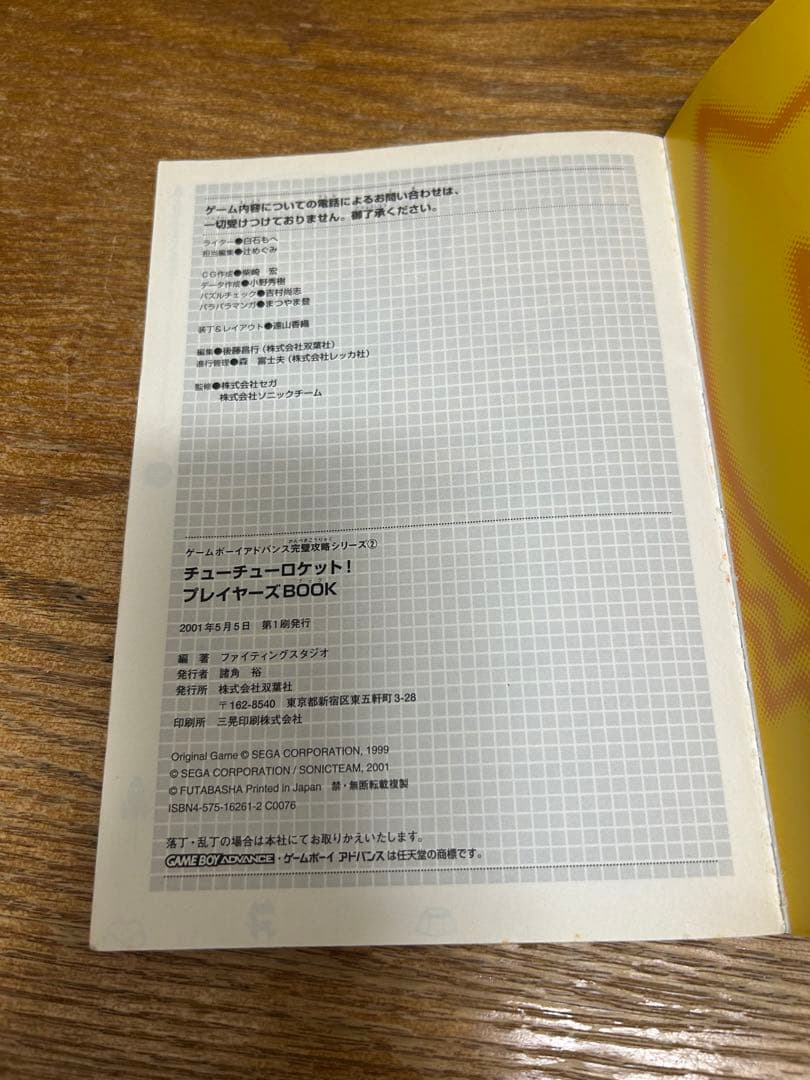 ゲーム内容についての電話によるお問い合わせは、
一切受けつけておりません。御了承ください。
ライター●白石もへ
担当編集●辻めぐみ
CG作成●柴崎　宏
データ作成●小野秀樹
パズルチェック●吉村尚志
パラパラマンガ●まつやま登
装丁&レイアウト●遠山香織
編集●後藤昌行（株式会社双葉社）
進行管理●森　富士夫（株式会社レッカ社）
監修●株式会社セガ
株式会社ソニックチーム
ゲームボーイアドバンス完璧攻略シリーズ②
チューチューロケット！
プレイヤーズBOOK
2001年5月5日　第1刷発行
編　著　ファイティングスタジオ
発行者　諸角　裕
発行所　株式会社双葉社
〒162-8540　東京都新宿区東五軒町3-28
印刷所　三晃印刷株式会社
Original Game © SEGA CORPORATION, 1999
© SEGA CORPORATION / SONICTEAM, 2001
© FUTABASHA Printed in Japan　禁・無断転載複製
ISBN4-575-16261-2 C0076
落丁・乱丁の場合は本社にてお取りかえいたします。
GAME BOY ADVANCE・ゲームボーイ アドバンスは任天堂の商標です。